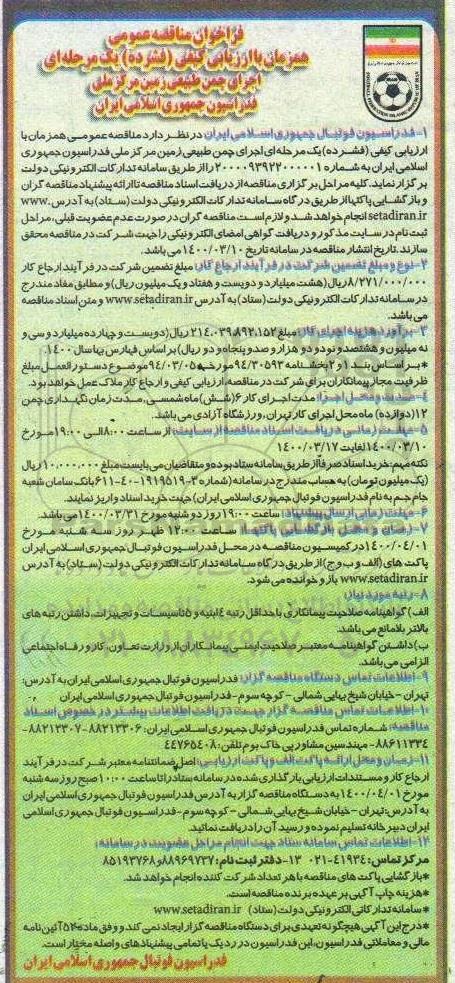 فراخوان مناقصه عمومی
همزمان با ارزیابی کیفی (فشرده) یک مرحله‌ای
اجرای چمن طبیعی زمین مرکز ملی
فدراسیون جمهوری اسلامی ایران
۱- فدراسیون فوتبال جمهوری اسلامی ایران در نظر دارد مناقصه عمومی همزمان با
ارزیابی کیفی (فشرده) یک مرحله‌ای اجرای چمن طبیعی زمین مرکز ملی فدراسیون جمهوری
اسلامی ایران به شماره ۲۰۰۰۰۹۳۹۲۳۰۰۰۰۰۱ را از طریق سامانه تدارکات الکترونیکی دولت
برگزار نماید. کلیه مراحل برگزاری مناقصه از دریافت اسناد مناقصه تا ارائه پیشنهاد مناقصه گران
و بازگشایی پاکتها از طریق درگاه سامانه تدارکات الکترونیکی دولت (ستاد) به آدرس www.
setadiran.ir انجام خواهد شد و لازم است مناقصه گران در صورت عدم عضویت قبلی، مراحل
ثبت نام در سایت مذکور و دریافت گواهی امضای الکترونیکی را جهت شرکت در مناقصه محقق
سازند. تاریخ انتشار مناقصه در سامانه تاریخ ۱۴۰۰/۰۳/۱۰ می باشد.
۲- نوع و مبلغ تضمین شرکت در فرآیند ارجاع کار: مبلغ تضمین شرکت در فرآیند ارجاع کار
۸/۲۷۱/۰۰۰/۰۰۰ ریال (هشت میلیارد و دویست و هفتاد و یک میلیون ریال) و مطابق مفاد مندرج
در سامانه تدارکات الکترونیکی دولت (ستاد) به آدرس www.setadiran.ir و متن اسناد مناقصه
می باشد.
۳- برآورد هزینه اجرای کار: مبلغ ۲۱۴،۰۳۹،۸۹۲،۱۵۲ ریال (دویست و چهارده میلیارد و سی و
نه میلیون و هشتصد و نود و دو هزار و صد و پنجاه و دو ریال) بر اساس فهارس بها سال ۱۴۰۰.
*بر اساس بند ۱ و ۲ بخشنامه ۹۴/۳۰۵۹۳ مورخ ۹۴/۰۳/۰۵ موضوع دستورالعمل مبلغ
ظرفیت مجاز پیمانکاران برای شرکت در مناقصه، ارزیابی کیفی و ارجاع کار ملاک عمل خواهد بود.
۴- مدت و محل اجرا: مدت اجرای کار ۶ (شش) ماه شمسی، مدت زمان نگهداری چمن
۱۲ (دوازده) ماه محل اجرای کار تهران، ورزشگاه آزادی می باشد.
۵- مهلت زمانی دریافت اسناد مناقصه از سایت: از ساعت ۸:۰۰ الی ۱۹:۰۰ مورخ
۱۴۰۰/۰۳/۱۰ لغایت ۱۴۰۰/۰۳/۱۷
نکته مهم: خرید اسناد صرفاً از طریق سامانه ستاد بوده و متقاضیان می بایست مبلغ ۱۰،۰۰۰،۰۰۰ ریال
(یک میلیون تومان) به حساب مندرج در سامانه (شماره ۳-۱۹۱۹۵۱۹-۴۰-۶۱۱ بانک سامان شعبه
جام جم به نام فدراسیون فوتبال جمهوری اسلامی ایران) جهت خرید اسناد واریز نمایند.
۶- مهلت زمانی ارسال پیشنهاد: ساعت ۱۹:۰۰ روز دو شنبه مورخ ۱۴۰۰/۰۳/۳۱ می باشد.
۷- زمان و محل بازگشایی پاکتها: ساعت ۱۲:۰۰ ظهر روز سه شنبه مورخ
۱۴۰۰/۰۴/۰۱ در کمیسیون مناقصه در محل فدراسیون فوتبال جمهوری اسلامی ایران
پاکت های (الف و ب و ج) از طریق درگاه سامانه تدارکات الکترونیکی دولت (ستاد) به آدرس
www.setadiran.ir باز و خوانده می شود.
۸- رتبه مورد نیاز:
الف) گواهینامه صلاحیت پیمانکاری با حداقل رتبه ۴ ابنیه و ۵ تاسیسات و تجهیزات، داشتن رتبه های
بالاتر بلامانع می باشد.
ب) داشتن گواهینامه معتبر صلاحیت ایمنی پیمانکاران از وزارت تعاون، کار و رفاه اجتماعی
الزامی می باشد.
۹- اطلاعات تماس دستگاه مناقصه گزار: فدراسیون فوتبال جمهوری اسلامی ایران به آدرس:
تهران - خیابان شیخ بهایی شمالی - کوچه سوم - فدراسیون فوتبال جمهوری اسلامی ایران
۱۰- اطلاعات تماس مناقصه گزار جهت دریافت اطلاعات بیشتر در خصوص اسناد
مناقصه: شماره تماس فدراسیون فوتبال جمهوری اسلامی ایران: ۸۸۲۱۳۳۰۶ - ۸۸۲۱۳۳۰۷ -
۸۸۶۱۱۳۳۴ - مهندسین مشاور پی خاک بوم تلفن: ۴۴۷۶۵۴۰۸
۱۱- زمان و محل ارائه پاکت الف و پاکت ارزیابی: اصل ضمانتنامه معتبر شرکت در فرآیند
ارجاع کار و مستندات ارزیابی بارگذاری شده در سامانه ستاد را تا ساعت ۱۰:۰۰ صبح روز سه شنبه
مورخ ۱۴۰۰/۰۴/۰۱ به دستگاه مناقصه گزار به آدرس فدراسیون فوتبال جمهوری اسلامی ایران
به آدرس: تهران - خیابان شیخ بهایی شمالی - کوچه سوم - فدراسیون فوتبال جمهوری اسلامی
ایران دبیرخانه تسلیم نموده و رسید آن را دریافت نمائید.
۱۲- اطلاعات تماس سامانه ستاد جهت انجام مراحل عضویت در سامانه:
مرکز تماس: ۴۱۹۳۴-۰۲۱ ۱۳- دفتر ثبت نام: ۸۸۹۶۹۷۳۷ و ۸۵۱۹۳۷۶۸
*بازگشایی پاکت های مناقصه با هر تعداد شرکت کننده انجام خواهد شد.
*هزینه چاپ آگهی بر عهده برنده مناقصه است.
*سامانه تدارکاتی الکترونیکی دولت (ستاد) www.setadiran.ir
*درج این آگهی هیچگونه تعهدی برای دستگاه مناقصه گزار ایجاد نمی کند و وفق ماده ۵۴ آئین نامه
مالی و معاملاتی فدراسیون، این فدراسیون در رد یک یا تمامی پیشنهادهای واصله مختار است.
فدراسیون فوتبال جمهوری اسلامی ایران